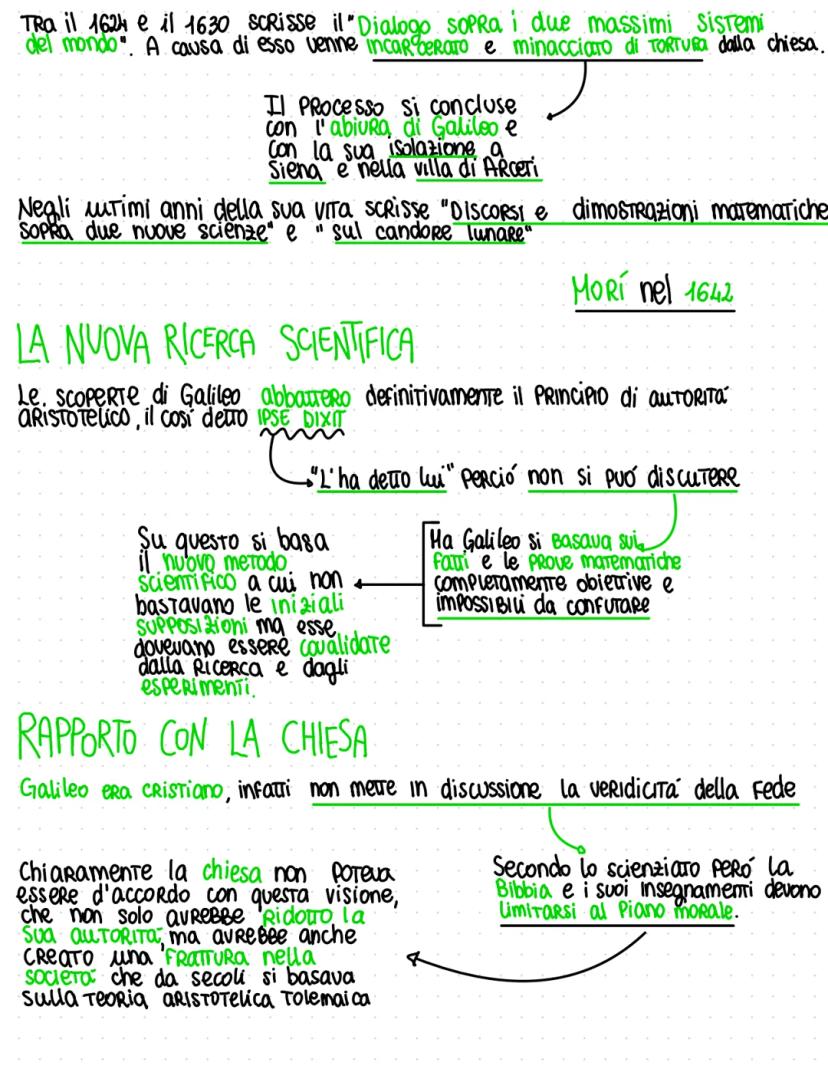 Tra il 1624 e il 1630 scrisse il "Dialogo sopra i due massimi sistemi
del mondo". A causa di esso venne incarcerato e minacciato di tortura dalla chiesa.
Il processo si concluse
con l'abiura di Galileo e
con la sua isolazione a
Siena e nella villa di Arceri
Negli ultimi anni della sua vita scrisse "Discorsi e dimostrazioni matematiche
sopra due nuove scienze" e "sul candore lunare"
Morí nel 1642
LA NUOVA RICERCA SCIENTIFICA
Le. scoperte di Galileo abbattero definitivamente il principio di autoritá
aristotelico, il cosí detto IPSE DIXIT
"L'ha detto lui" perció non si puó discutere
Ma Galileo si basava sui
fatti e le prove matematiche
completamente obiettive e
impossibili da confutare
Su questo si basa
il nuovo metodo
scientifico a cui non
bastavano le iniziali
supposizioni ma esse
dovevano essere covalidate
dalla ricerca e dagli
esperimenti.
RAPPORTO CON LA CHIESA
Galileo era cristiano, infatti non mette in discussione la veridicitá della Fede
Secondo lo scienziato peró la
Bibbia e i suoi insegnamenti devono
limitarsi al piano morale.
Chiaramente la chiesa non poteva
essere d'accordo con questa visione,
che non solo avrebbe ridotto la
sua autoritá, ma avrebbe anche
creato una frattura nella
societá che da secoli si basava
sulla teoria aristotelica tolemaica